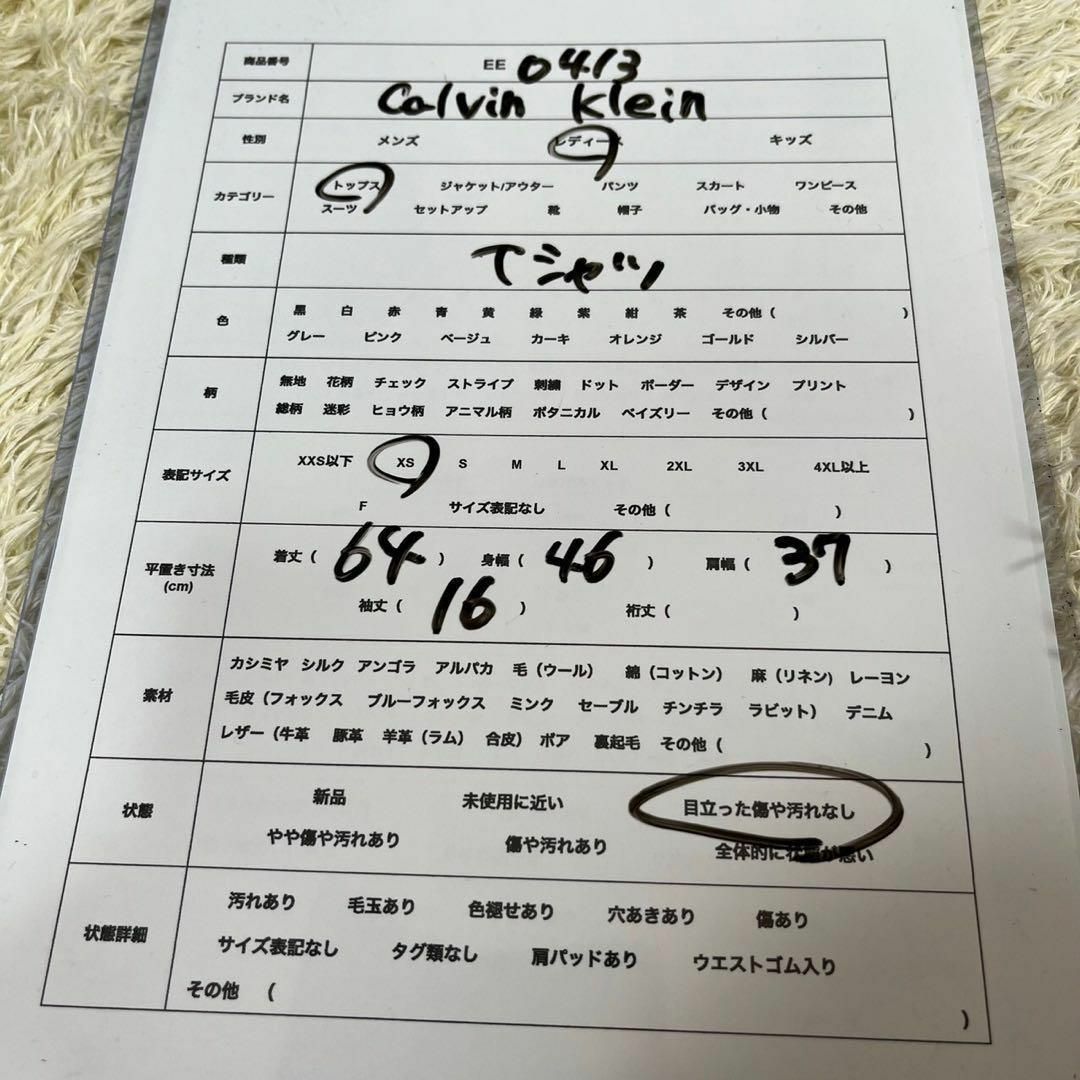 商品番号 EE 0413
ブランド名 Calvin Klein
性別 メンズ レディース キッズ
カテゴリー トップス ジャケット/アウター パンツ スカート ワンピース
スーツ セットアップ 靴 帽子 バッグ・小物 その他
種類 Tシャツ
色 黒 白 赤 青 黄 緑 紫 紺 茶 その他 ( )
グレー ピンク ベージュ カーキ オレンジ ゴールド シルバー
柄 無地 花柄 チェック ストライプ 刺繍 ドット ボーダー デザイン プリント
総柄 迷彩 ヒョウ柄 アニマル柄 ボタニカル ペイズリー その他 ( )
表記サイズ XXS以下 XS S M L XL 2XL 3XL 4XL以上
F サイズ表記なし その他 ( )
平置き寸法 (cm) 着丈 ( 64 ) 身幅 ( 46 ) 肩幅 ( 37 )
袖丈 ( 16 ) 裄丈 ( )
素材 カシミヤ シルク アンゴラ アルパカ 毛（ウール） 綿（コットン） 麻（リネン) レーヨン
毛皮（フォックス ブルーフォックス ミンク セーブル チンチラ ラビット） デニム
レザー（牛革 豚革 羊革（ラム） 合皮） ボア 裏起毛 その他 ( )
状態 新品 未使用に近い 目立った傷や汚れなし
やや傷や汚れあり 傷や汚れあり 全体的に状態が悪い
状態詳細 汚れあり 毛玉あり 色褪せあり 穴あきあり 傷あり
サイズ表記なし タグ類なし 肩パッドあり ウエストゴム入り
その他 ( )